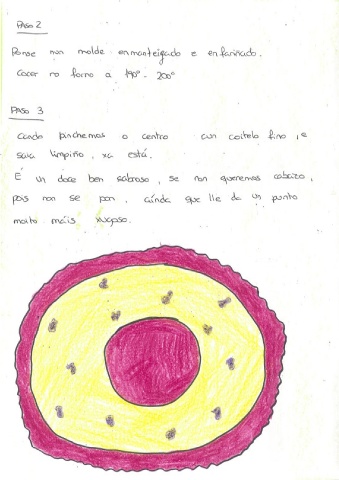 PASO 2
Ponse nun molde enmanteigado e enfariñado.
Cocer no forno a 190º - 200º
PASO 3
Cando pinchemos o centro cun coitelo fino, e
saia limpiño, xa está.
É un doce ben saboroso, se non queremos cabazo,
pois non se pon, aínda que lle da un punto
moito máis xugoso.